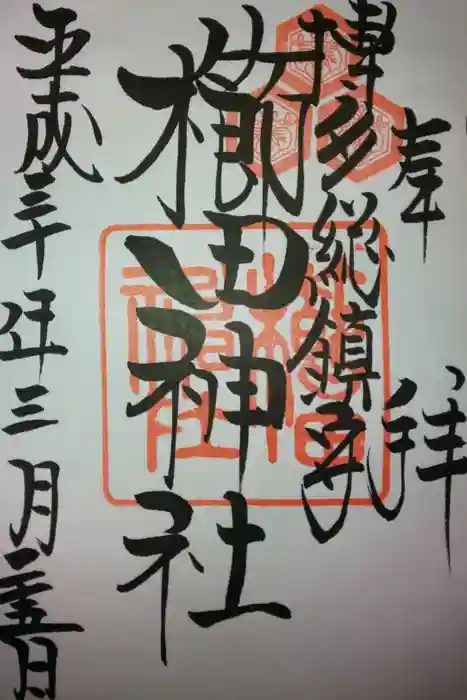 奉拝
博多総鎮守
櫛田神社
平成三十年三月二十五日
櫛田
神社